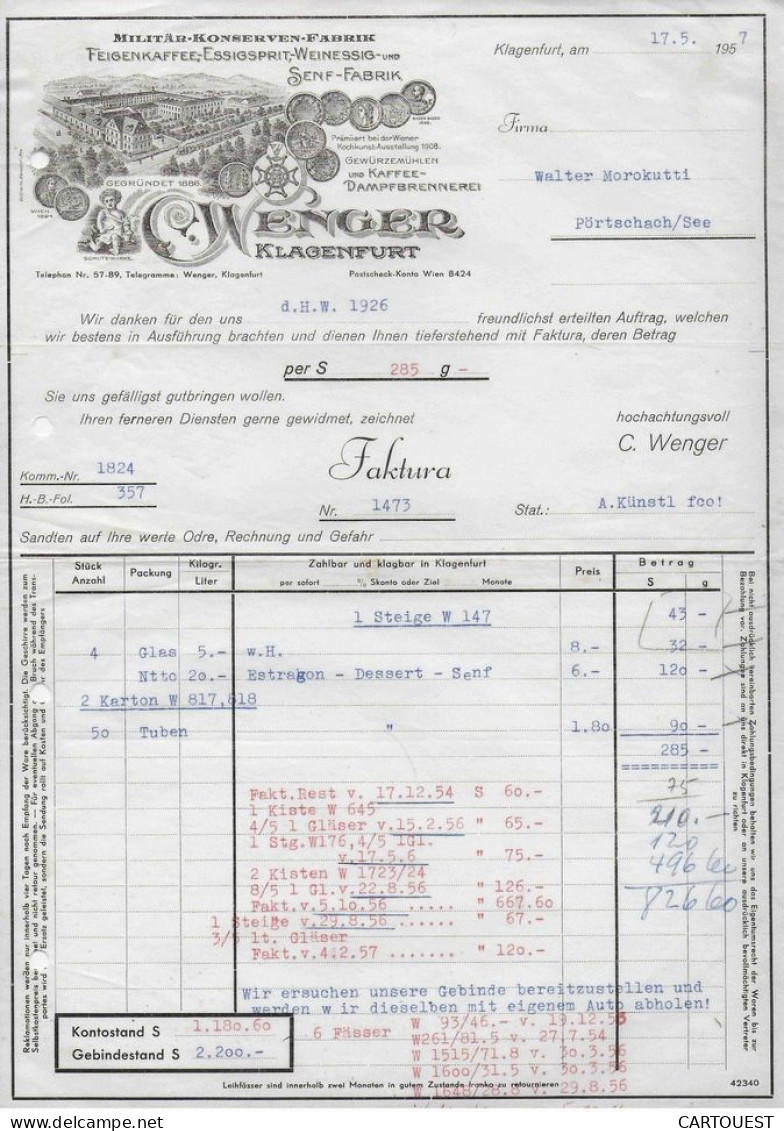 MILITÄR-KONSERVEN-FABRIK
FEIGENKAFFEE,-ESSIGSPRIT,-WEINESSIG-UND
SENF-FABRIK
Prämiiert bei der Wiener
Kochkunst-Ausstellung 1908.
GEWÜRZEMÜHLEN
UND KAFFEE-
DAMPFBRENNEREI
GEGRÜNDET 1886.
SCHUTZ-MARKE.
C. WENGER
KLAGENFURT
Telephon Nr. 57-89, Telegramme: Wenger, Klagenfurt Postscheck-Konto Wien 8424
Klagenfurt, am 17.5. 1957
Firma
Walter Morokutti
Pörtschach/See
Wir danken für den uns d.H.W. 1926 freundlichst erteilten Auftrag, welchen
wir bestens in Ausführung brachten und dienen Ihnen tieferstehend mit Faktura, deren Betrag
per S 285 g -
Sie uns gefälligst gutbringen wollen.
Ihren ferneren Diensten gerne gewidmet, zeichnet hochachtungsvoll
C. Wenger
Faktura
Komm.-Nr. 1824
H.-B.-Fol. 357
Nr. 1473 Stat.: A.Künstl fco!
Sandten auf Ihre werte Odre, Rechnung und Gefahr
Stück Anzahl Packung Kilogr. Liter Zahlbar und klagbar in Klagenfurt Preis Betrag
per sofort % Skonto oder Ziel Monate S g
1 Steige W 147 43 -
4 Glas 5.- w.H. 8.- 32 -
Ntto 20.- Estragon - Dessert - Senf 6.- 120 -
2 Karton W 817,818
50 Tuben " 1.80 90 -
285 -
==========
Fakt.Rest v. 17.12.54 S 60.- 75
1 Kiste W 645 210.-
4/5 l Gläser v.15.2.56 " 65.- 120
1 Stg.W176,4/5 lGl.
v.17.5.6 " 75.- 496 60
2 Kisten W 1723/24
8/5 l Gl.v.22.8.56 " 126.- 826 60
Fakt.v.5.10.56 ..... " 667.60
1 Steige v.29.8.56 ..... " 67.-
3/5 lt. Gläser
Fakt.v.4.2.57 ....... " 120.-
Wir ersuchen unsere Gebinde bereitzustellen und
werden w ir dieselben mit eigenem Auto abholen!
Kontostand S 1.180.60
Gebindestand S 2.200.-
6 Fässer W 93/46.- v. 19.12.53
W261/81.5 v. 27.7.54
W 1515/71.8 v. 30.3.56
W 1600/31.5 v. 30.3.56
W 1648/28.8 v. 29.8.56
Leihfässer sind innerhalb zwei Monaten in gutem Zustande franko zu retournieren
42340
Reklamationen werden nur innerhalb vier Tagen nach Empfang der Ware berücksichtigt. Die Geschirre werden zum
Bei nicht ausdrücklich vereinbarten Zahlungsbedingungen behalten wir uns das Eigentumsrecht der Waren bis zur
Bezahlung vor. Zahlungen sind an uns direkt in Klagenfurt oder an unsere ausdrücklich bevollmächtigten Vertreter
zu richten
CARTOUEST